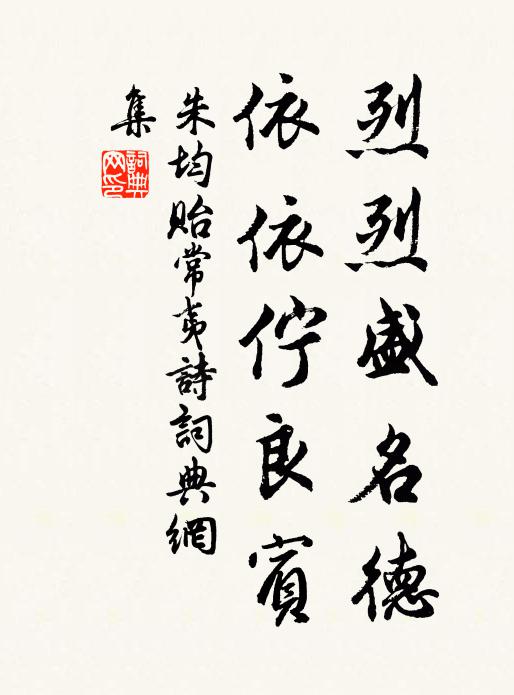 烈烈盛名德
依依佇良賓
朱均貽常夷詩詞典網
集
詞典
网印